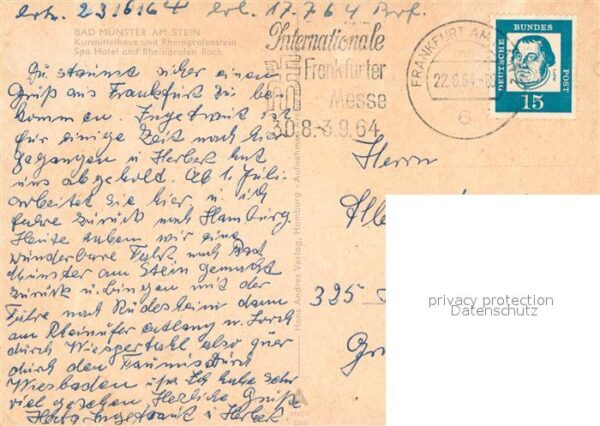 erh. 23/6/64 erl. 17.7.64 Brf.
BAD MÜNSTER AM STEIN
Kurmittelhaus und Rheingrafenstein
Spa Hotel and Rheingrafen Rock
Du staunst sicher einen
Gruß aus Frankfurt zu be-
kommen. Ingetraut ist
für einige Zeit nach hier
gegangen u. Herbert hat
uns abgeholt. Ab 1. Juli
arbeitet sie hier u. ich
fahre zurück nach Hamburg.
Heute haben wir eine
wunderbare Fahrt nach Bad
Münster am Stein gemacht
zurück u. Bingen mit der
Fähre nach Rüdesheim dann
am Rheinufer entlang u. Lorch
durch Wispertahl also quer
durch den Taunus durch
Wiesbaden usw. Ich habe sehr
viel gesehen. Herzliche Grüße
Ingetraut u. Herbert
Internationale
Frankfurter
Messe
30.8.-3.9.64
FRANKFURT AM
22.6.64
6
DEUTSCHE BUNDESPOST
15
Hans Andres Verlag, Hamburg - Aufnahme
Herrn
325
privacy protection
Datenschutz